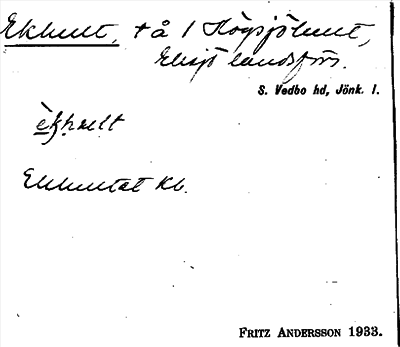 Ekhult, t å / Högsjöhult,
Eksjö landsförs.
S. Vedbo hd, Jönk. l.
Ekhultet Kb.
FRITZ ANDERSSON 1933.